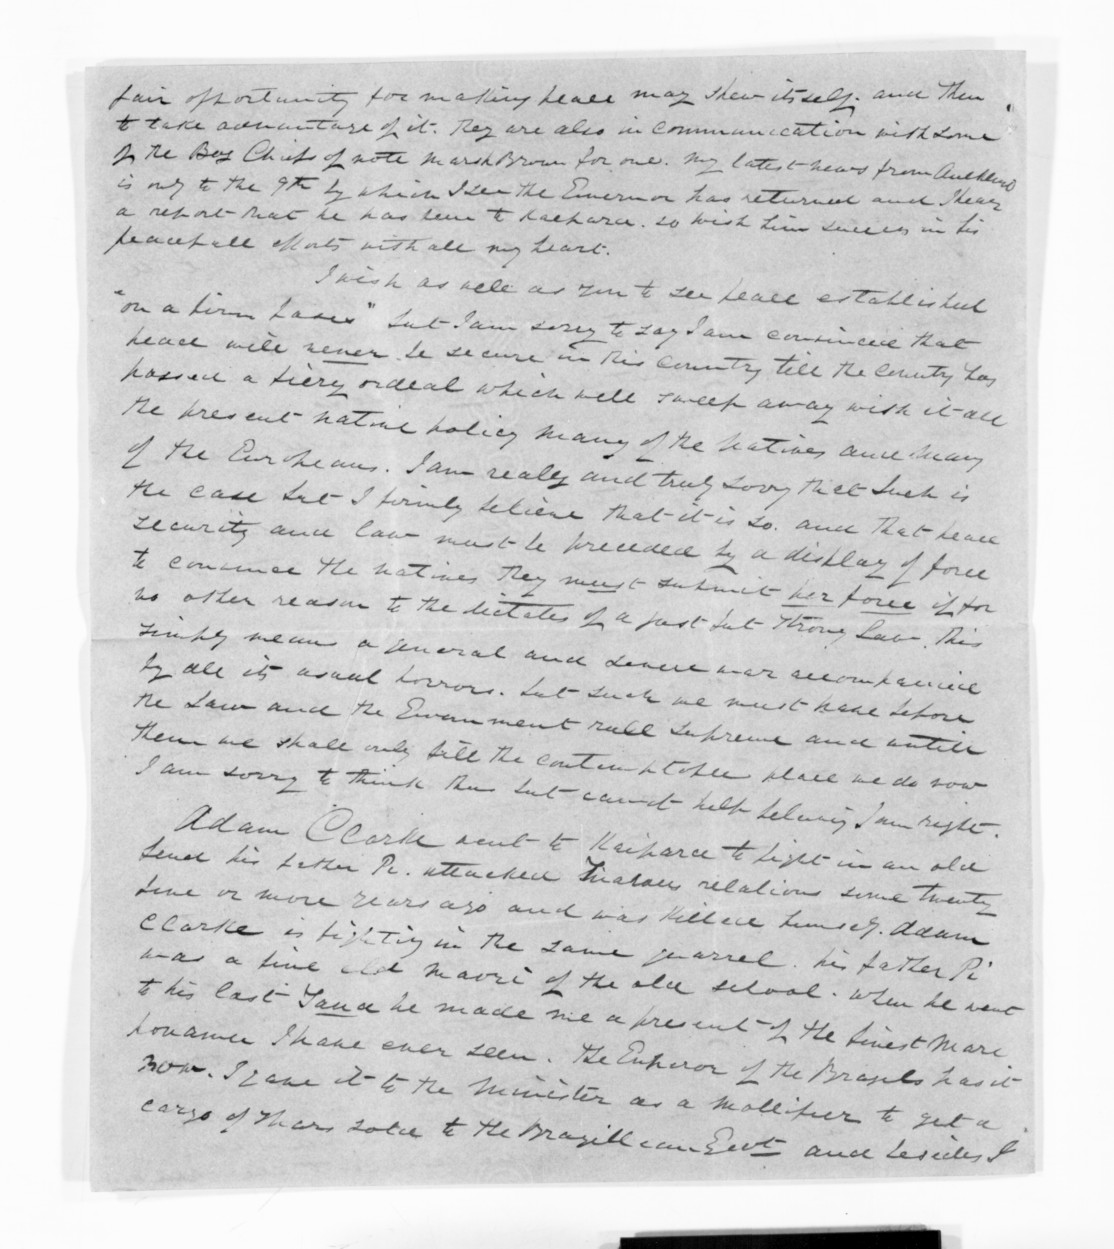 fair opportunity for making peace may shew itself. and then
to take advantage of it. They are also in communication with some
of the Bay Chiefs of note Marsh Brown for one. My latest news from Auckland
is only to the 9th by which I see the Governor has returned and I hear
a report that he has been to Kaipara. so wish him success in his
peacefull efforts with all my heart.
I wish as well as you to see peace established
"on a firm basis" but I am sorry to say I am convinced that
peace will never be secure in this country till the country has
passed a fiery ordeal which will sweep away with it all
the present native policy many of the Natives and many
of the Europeans. I am really and truly sorry that such is
the case but I firmly believe that it is so. and that peace
security and law must be preceded by a display of force
to convince the natives they must submit per force if for
no other reason to the dictates of a just but strong Law. This
simply means a general and severe war accompanied
by all its usual horrors. but such we must have before
the Law and the Government rule supreme and untill
then we shall only fill the contemptable place we do now
I am sorry to think thus but cannot help beliving I am right.
Adam Clarke went to Kaipara to fight in an old
feud his father Pi. attacked relations some twenty
five or more years ago and was killed himself. Adam
Clarke is fighting in the same quarrel. his father Pi
was a fine old Maori of the old school. When he went
to his last Taua he made me a present of the finest Mare
ponamu I have ever seen. The Emperor of the Brazils has it
now. I gave it to the Minister as a mollifier to get a
cargo of spars sold to the Brazillean Govt and besides I